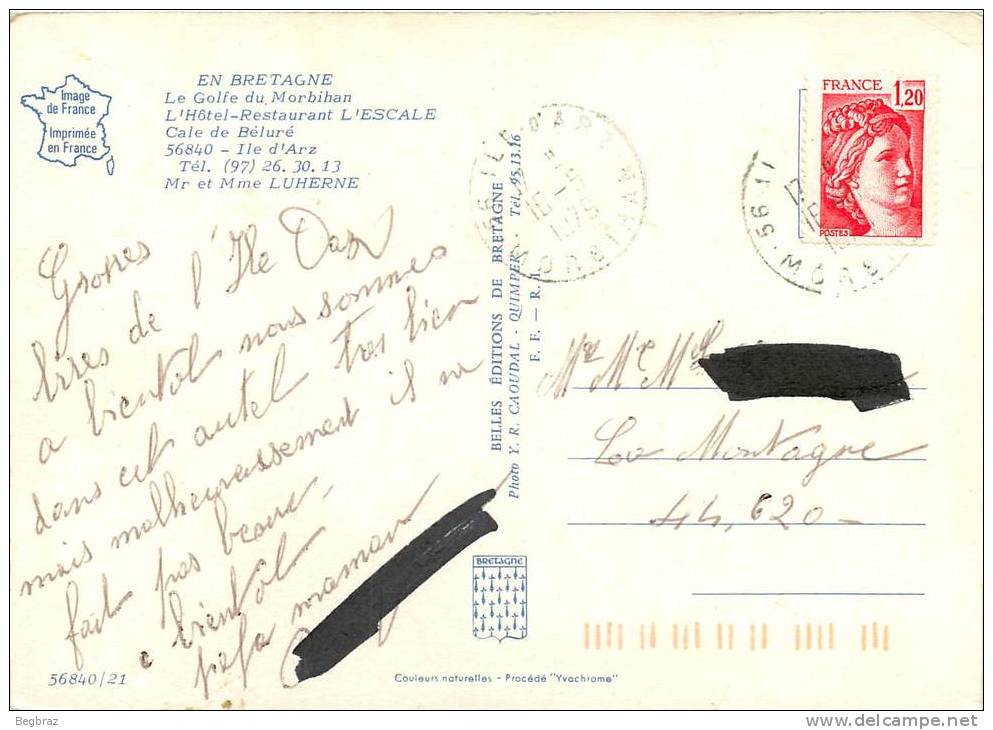 Image
de France
Imprimée
en France
EN BRETAGNE
Le Golfe du Morbihan
L'Hôtel-Restaurant L'ESCALE
Cale de Béluré
56840 - Ile d'Arz
Tél. (97) 26. 30. 13
Mr et Mme LUHERNE
Grosses
bises de l'Ile Darz
a bientot nous sommes
dans cet autel tres bien
mais malheureusement il ne
fait pas beau,
a bientot
papa maman
56840/21
BELLES ÉDITIONS DE BRETAGNE
Photo Y. R. CAOUDAL - QUIMPER - Tél. 95.13.16
E. F. — R. I.
BRETAGNE
Couleurs naturelles - Procédé "Yvachrome"
56 ILE D'ARZ
16 - 5
MORBIHAN
FRANCE
1,20
POSTES
56
MORBI
La Montagne
44,620-
Begbraz
www.delcampe.net